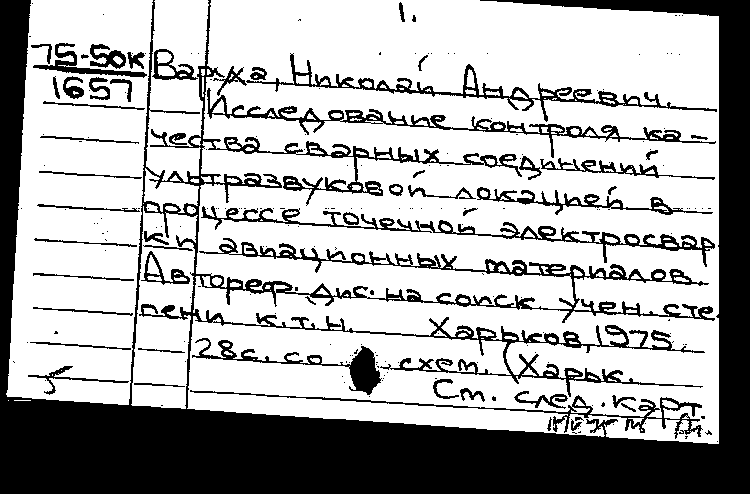 1.
75-50к
1657
Варуха, Николай Андреевич.
Исследование контроля ка-
чества сварных соединений
ультразвуковой локацией в
процессе точечной электросвар
ки авиационных материалов.
Автореф. дис. на соиск. учен. сте
пени к.т.н. Харьков, 1975.
28с. со схем. (Харьк.
5 Ст. след. карт.